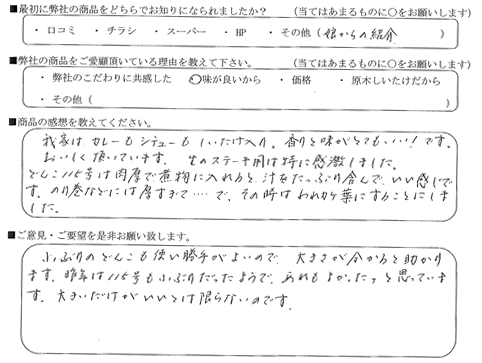 ■最初に弊社の商品をどちらでお知りになられましたか？　（当てはあまるものに○をお願いします）
・口コミ　・チラシ　・スーパー　・HP　・その他（娘からの紹介　）
■弊社の商品をご愛顧頂いている理由を教えて下さい。　（当てはあまるものに○をお願いします）
・弊社のこだわりに共感した　○味が良いから　・価格　・原木しいたけだから
・その他（　）
■商品の感想を教えてください。
我家は カレーも シチューも しいたけ入り。香りと味がとてもいい!です。
おいしく頂いています。生のステーキ用は特に感激しました。
どんこ115号は肉厚で煮物に入れると、汁をたっぷり含んで、いい感じで
す。のり巻などには厚すぎて……で、その時はわれ葉にすることにしま
した。
■ご意見・ご要望を是非お願い致します。
小ぶりのどんこも使い勝手がよいので 大きさが分かると助かり
ます。昨年は115号も小ぶりだったようで、あれもよかったっと思っていま
す。大きいだけがいいとは限らないのです。